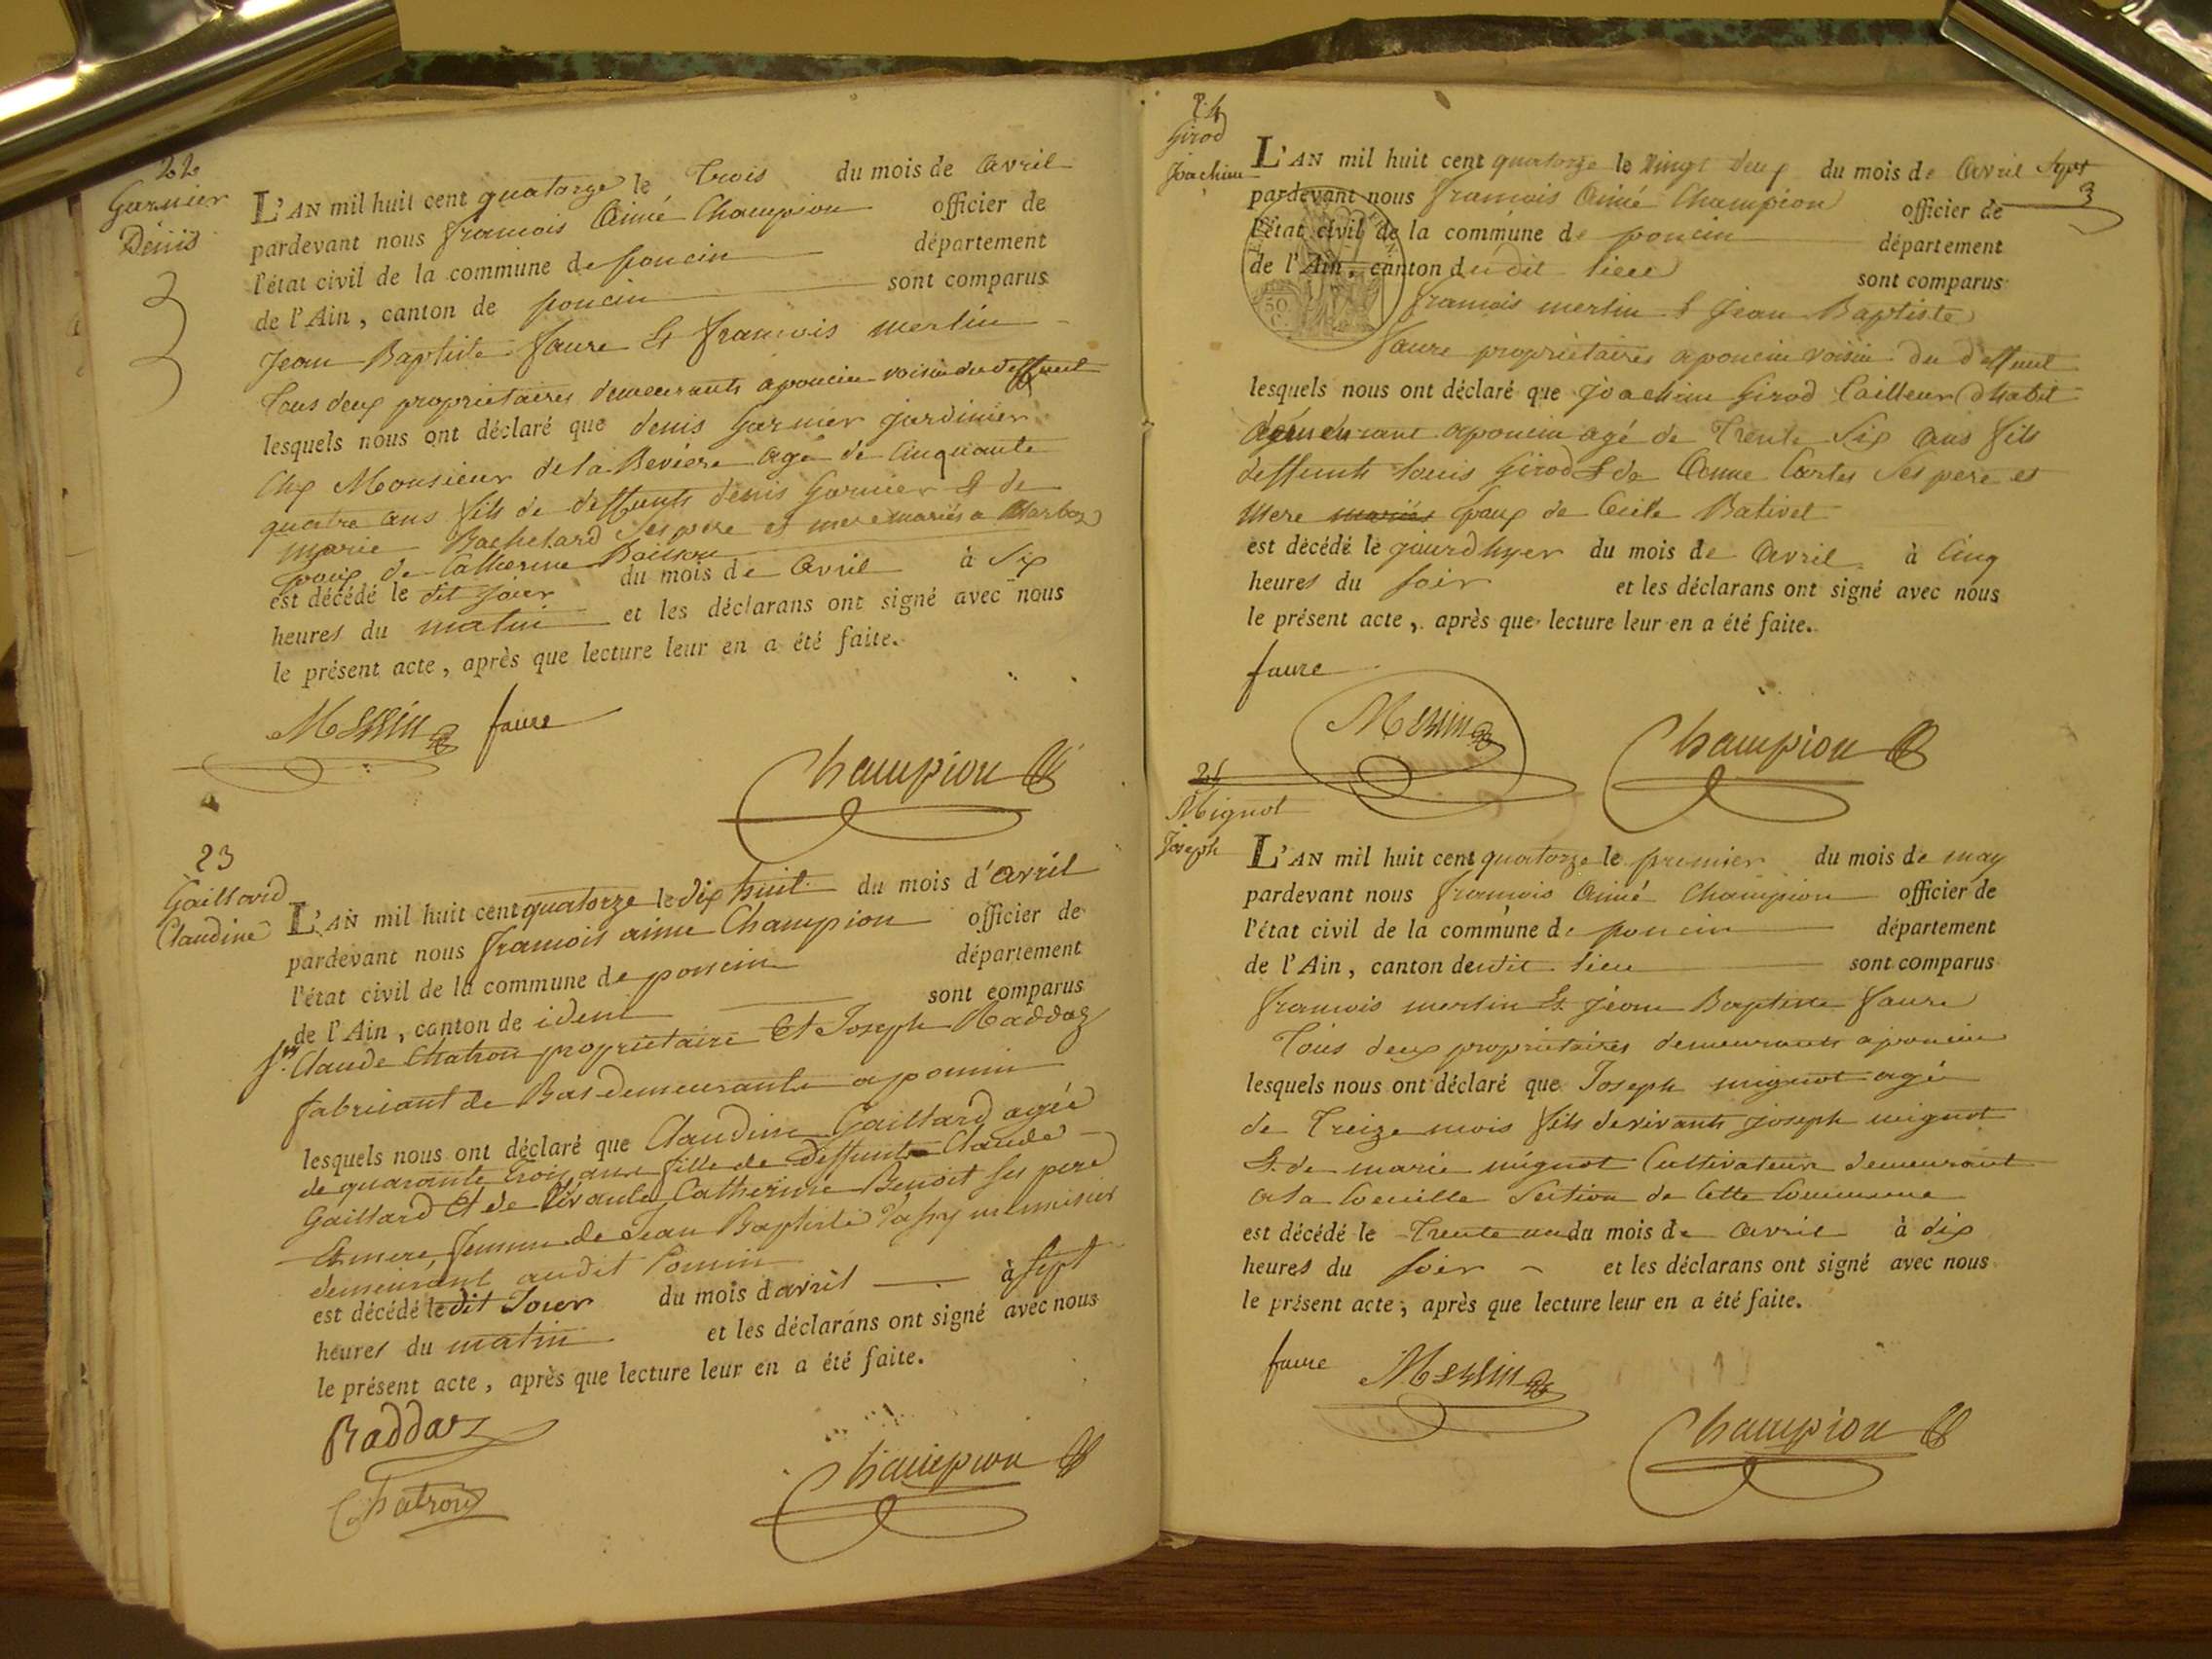 22
Garnier
Dénis
L'AN mil huit cent quatorze le Trois du mois de avril
pardevant nous francois Aimé Champion officier de
l'état civil de la commune de poncin département
de l'Ain, canton de poncin sont comparus
Jean Baptiste faure Et francois merlin
Tous deux proprietaires demeurants a poncin voisin du deffunt
lesquels nous ont déclaré que denis Garnier jardinier
Chez Monsieur de la Beviere agé de Cinquante
quatre ans fils de deffunts denis Garnier & de
marie Bachelard ses pere et mere mariés a Marboz
Epoux de Catherine
est décédé le dit jour du mois de avril à Six
heures du matin et les déclarans ont signé avec nous
le présent acte, après que lecture leur en a été faite.
Merlin faure
Champion
23
Gaillard
Claudine
L'AN mil huit cent quatorze le dix huit du mois d'avril
pardevant nous francois aimé Champion officier de
l'état civil de la commune de poncin département
de l'Ain, canton de idem sont comparus
Sr. Claude Chatron propriétaire Et Joseph Raddaz
fabricant de Bas demeurants a poncin
lesquels nous ont déclaré que Claudine Gaillard agée
de quarante trois ans fille de deffunt Claude
Gaillard Et de vivante Catherine Benoit ses pere
Et mere, femme de Jean Baptiste menuisier
demeurant audit Poncin
est décédé le dit Jour du mois d avril à sept
heures du matin et les déclarans ont signé avec nous
le présent acte, après que lecture leur en a été faite.
Raddaz
Chatron
Champion
24
Girod
Joachim
L'AN mil huit cent quatorze le vingt deux du mois de avril
3
pardevant nous francois Aimé Champion officier de
l'état civil de la commune de poncin département
de l'Ain, canton du dit lieu sont comparus
50
francois merlin & Jean Baptiste
faure proprietaires a poncin voisin du deffunt
lesquels nous ont déclaré que Joachim Girod Tailleur d'habit
demeurant a poncin agé de Trente Six ans fils
deffunts Louis Girod & de Anne Cartes ses pere et
mere mariés Epoux de Cecile Bativet
est décédé le jourdhyer du mois de avril à Cinq
heures du soir et les déclarans ont signé avec nous
le présent acte, après que lecture leur en a été faite.
faure
Merlin Champion
25
Mignot
Joseph
L'AN mil huit cent quatorze le premier du mois de may
pardevant nous francois Aimé Champion officier de
l'état civil de la commune de poncin département
de l'Ain, canton dudit lieu sont comparus
francois merlin Et Jean Baptiste faure
Tous deux proprietaires demeurants a poncin
lesquels nous ont déclaré que Joseph mignot agé
de Treize mois fils de vivants joseph mignot
& de marie mignot Cultivateur demeurant
a la Section de Cette Commune
est décédé le Trente du mois de avril à dix
heures du soir et les déclarans ont signé avec nous
le présent acte, après que lecture leur en a été faite.
faure Merlin
Champion